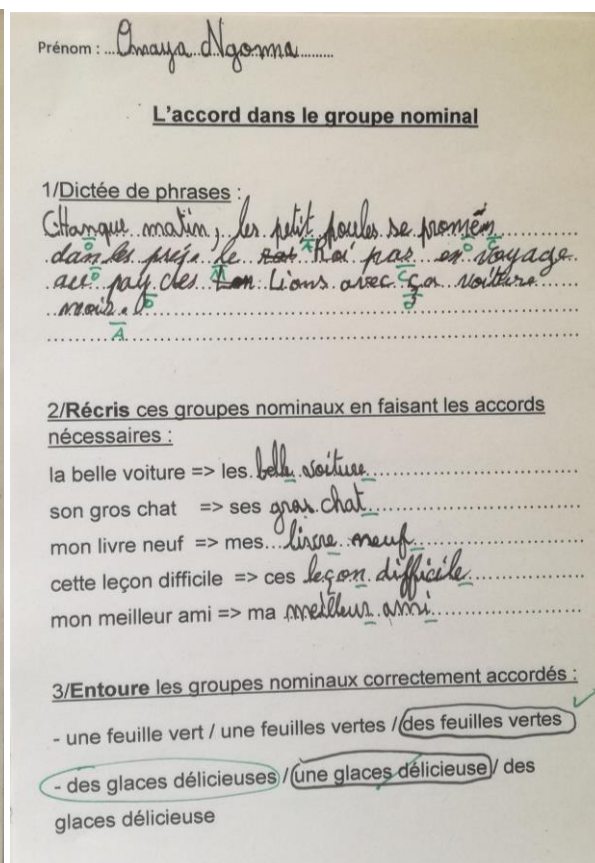 Prénom : ...Omaya Ngoma.........
L'accord dans le groupe nominal
1/Dictée de phrases :
Chanque matin, les petit poules se promèn
dans les préj. le Roi par en voyage
au pay des Lions avec ça voiture
moir.
O O A O C
A C
O O
A
2/Récris ces groupes nominaux en faisant les accords
nécessaires :
la belle voiture => les belle voiture
son gros chat => ses gros chat
mon livre neuf => mes livre neuf
cette leçon difficile => ces leçon difficile
mon meilleur ami => ma meilleur ami
3/Entoure les groupes nominaux correctement accordés :
- une feuille vert / une feuilles vertes / des feuilles vertes
- des glaces délicieuses / une glaces délicieuse / des
glaces délicieuse